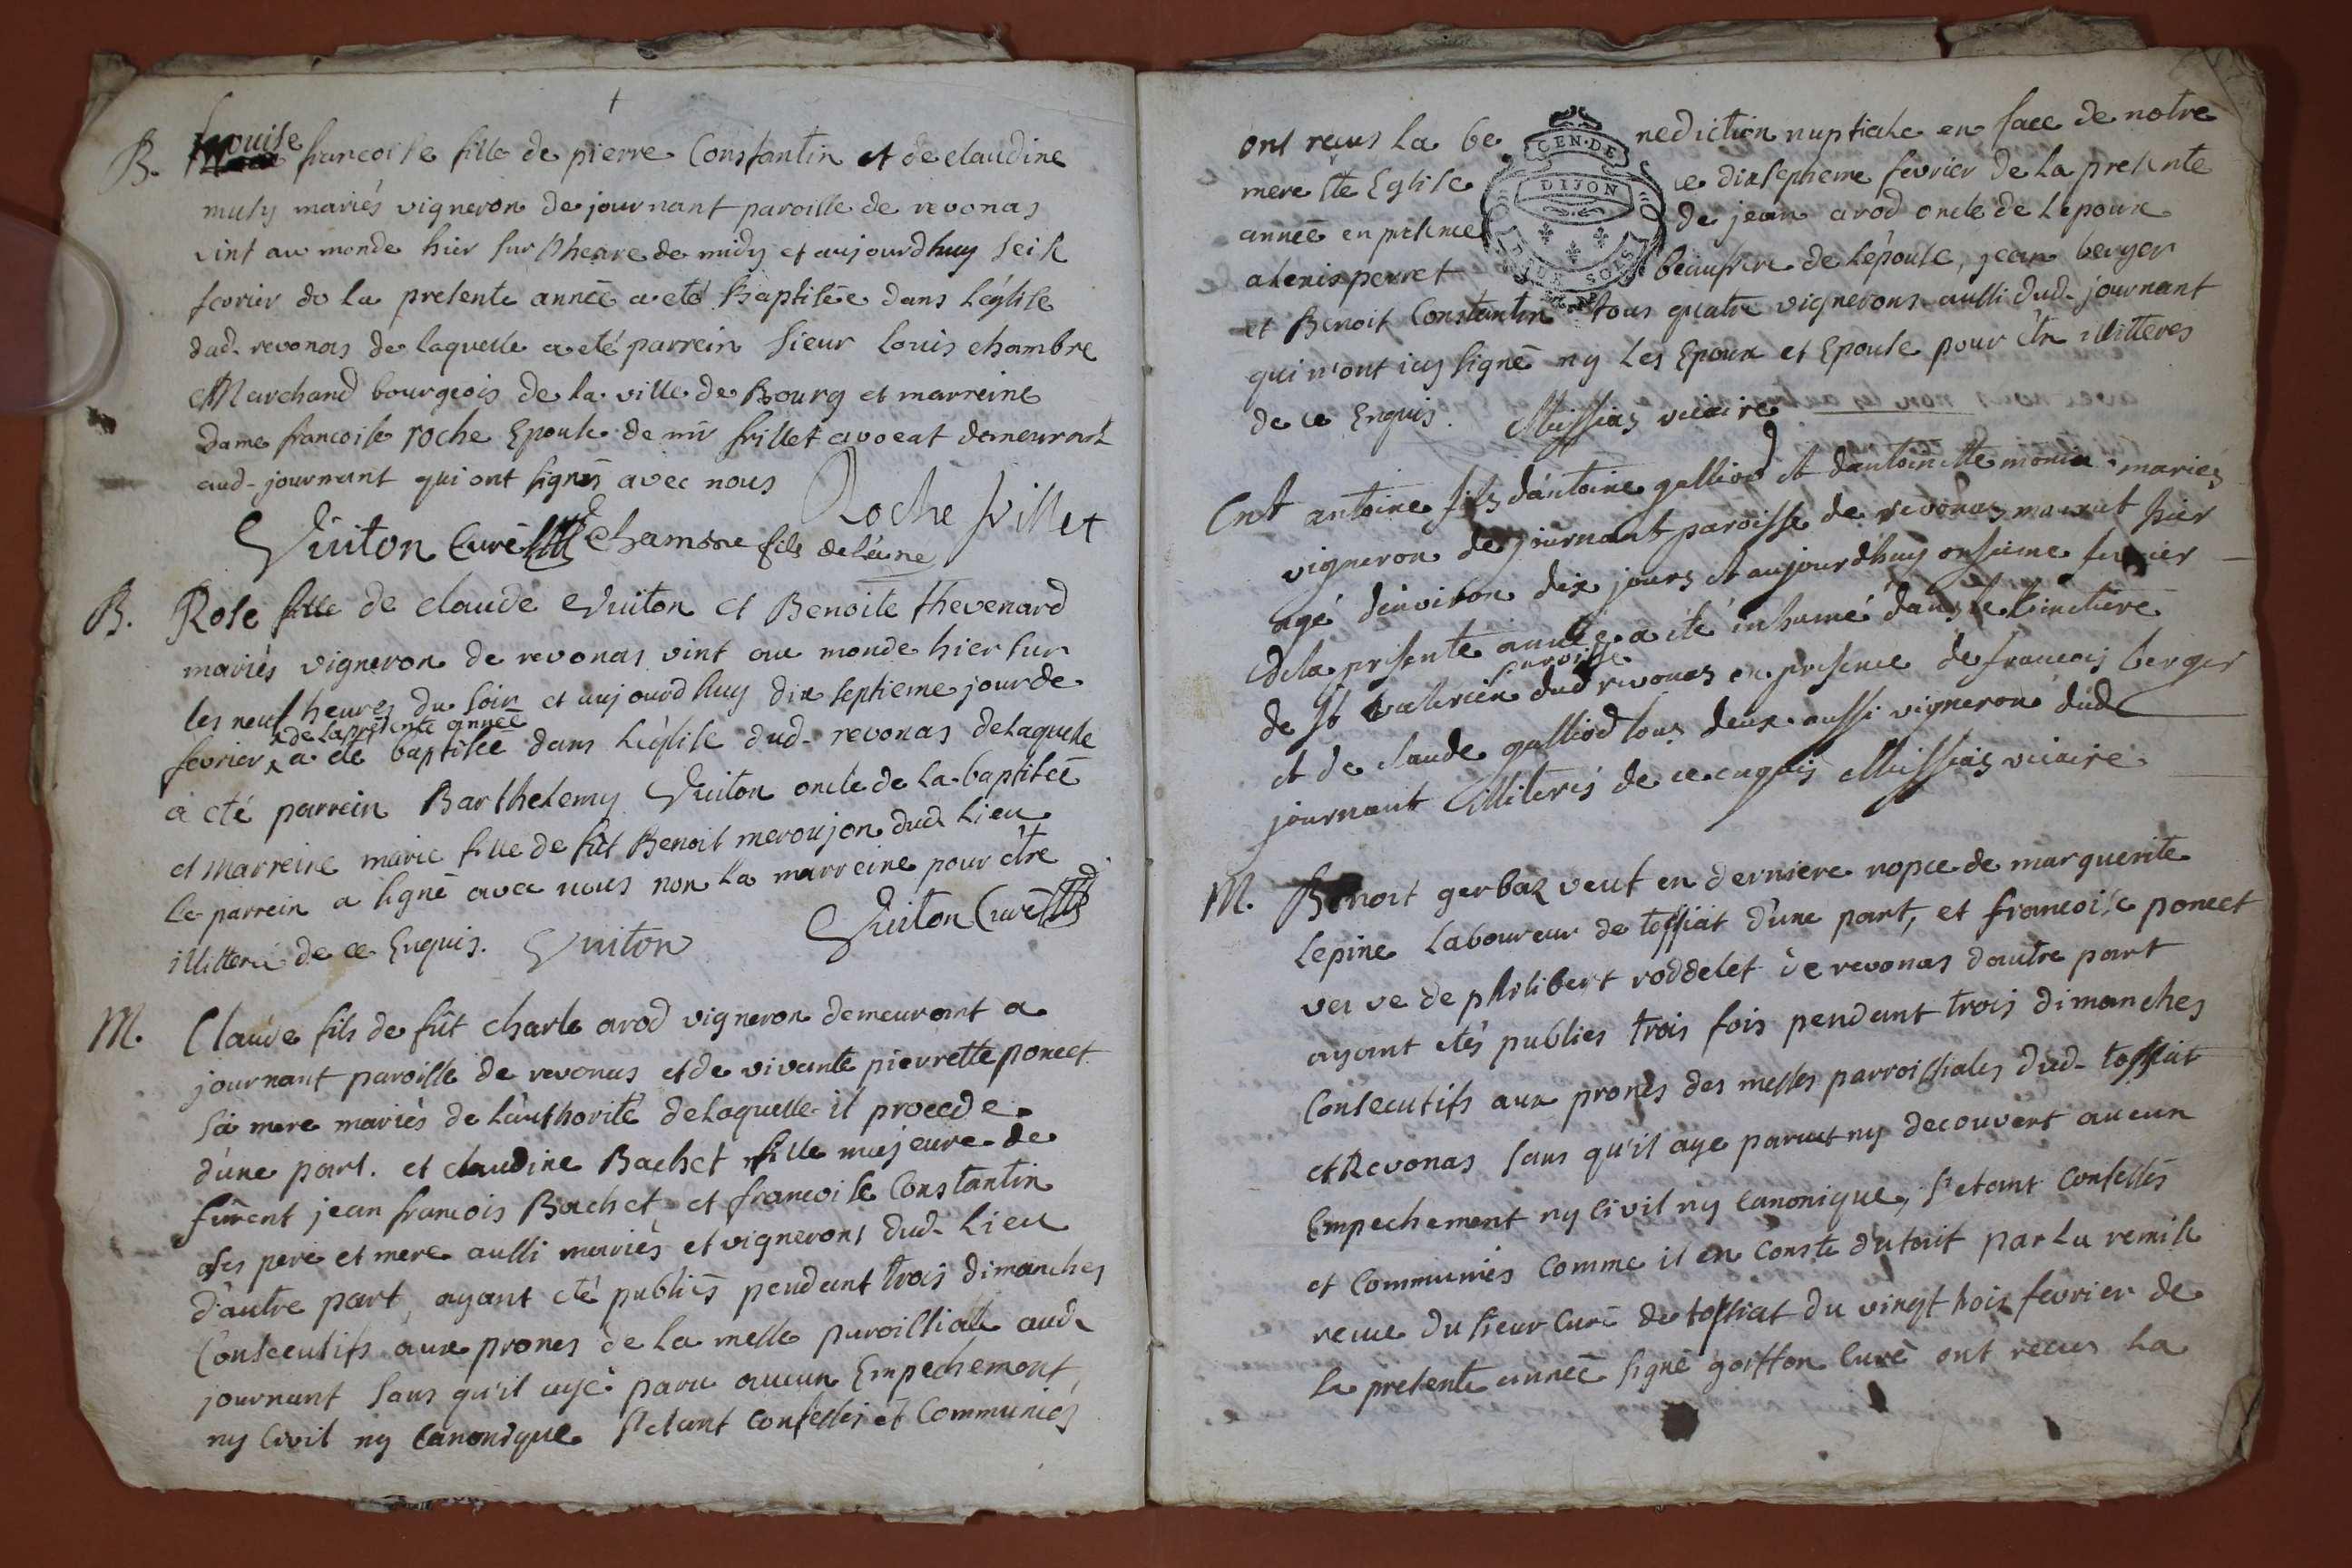 B. Louise francoise fille de pierre Constantin et de claudine
musy mariés vigneron de journant paroisse de revonas
vint au monde hier sur l'heure de midy et aujourdhuy seise
fevrier de la presente année a eté Baptisée dans L'église
dud. revonas de laquelle a eté parrein sieur Louis chambre
Marchand bourgeois de la ville de Bourg et marreine
Dame francoise roche Epouse de mr frillet avocat demeurant
aud. journant qui ont signés avec nous
Roche frillet
Vuiton Curé chambre fils de l'ainé
B. Rose fille de claude Vuiton et Benoite thevenard
mariés vigneron de revonas vint au monde hier sur
les neuf heures du soir et aujourdhuy dix septieme jour de
x de La presente année
fevrier x a eté baptisée dans L'église dud. revonas de Laquelle
a eté parrein Barthelemy Vuiton oncle de La baptisée
et Marreine marie fille de fût Benoit meroujon dud Lieu
Le parrein a signé avec nous non La marreine pour être
illitteré de ce Enquis. Vuiton Vuiton Curé
M. Claude fils de fût charle arod vigneron demeurant a
journant paroisse de revonas et de vivante pierrette poncet
sa mere mariés de L'authorité de Laquelle il procede
d'une part. et claudine Bachet fille majeure de
fûrent jean francois Bachet et francoise Constantin
ses pere et mere aussi mariés et vignerons dud. Lieu
d'autre part, ayant eté publiés pendant trois dimanches
Consecutifs aux prones de La messe paroissiale aud.
journant sans qu'il aye paru aucun Empechement
ny Civil ny Canonique s'etant Confessés et Communiés
ont recus La be nediction nuptiale en face de notre
CEN. DE
DIJON
mere ste Eglise ce dixseptieme fevrier de La presente
année en presence de jean arod oncle de L'epoux
alexis perret beaufrere de L'épouse, jean berger
et Benoit Constantin tous quatre vignerons aussi dud. journant
qui n'ont icy signé ny Les Epoux et Epouse pour être illitteres
de ce Enquis. Missias vicaire
Ent antoine fils dantoine galliod et dantoinette monin mariés
vigneron de journant paroisse de revonas mourut hier
agé d'environ dix jours et aujourd'huy onsieme fevrier
de la presente année a eté inhumé dans le Cimetiere
paroisse
de st valerien dud revonas en presence de francois berger
et de claude galliod tous deux aussi vigneron dud
journant illiterés de ce enquis Missias vicaire
M. Benoit gerbaz veuf en derniere nopce de marguerite
Lepine Laboureur de tossiat d'une part, et francoise poncet
veuve de philibert roddelet de revonas d'autre part
ayant etés publies trois fois pendant trois dimanches
Consecutifs aux prones des messes parroissiales dud. tossiat
et Revonas sans qu'il aye parut ny decouvert aucun
Empechement ny Civil ny Canonique, s'etant Confessés
et Communiés Comme il en Conste dutout par La remise
recue du sieur Curé de tossiat du vingt trois fevrier de
La presente année signé goiffon Curé ont recus La